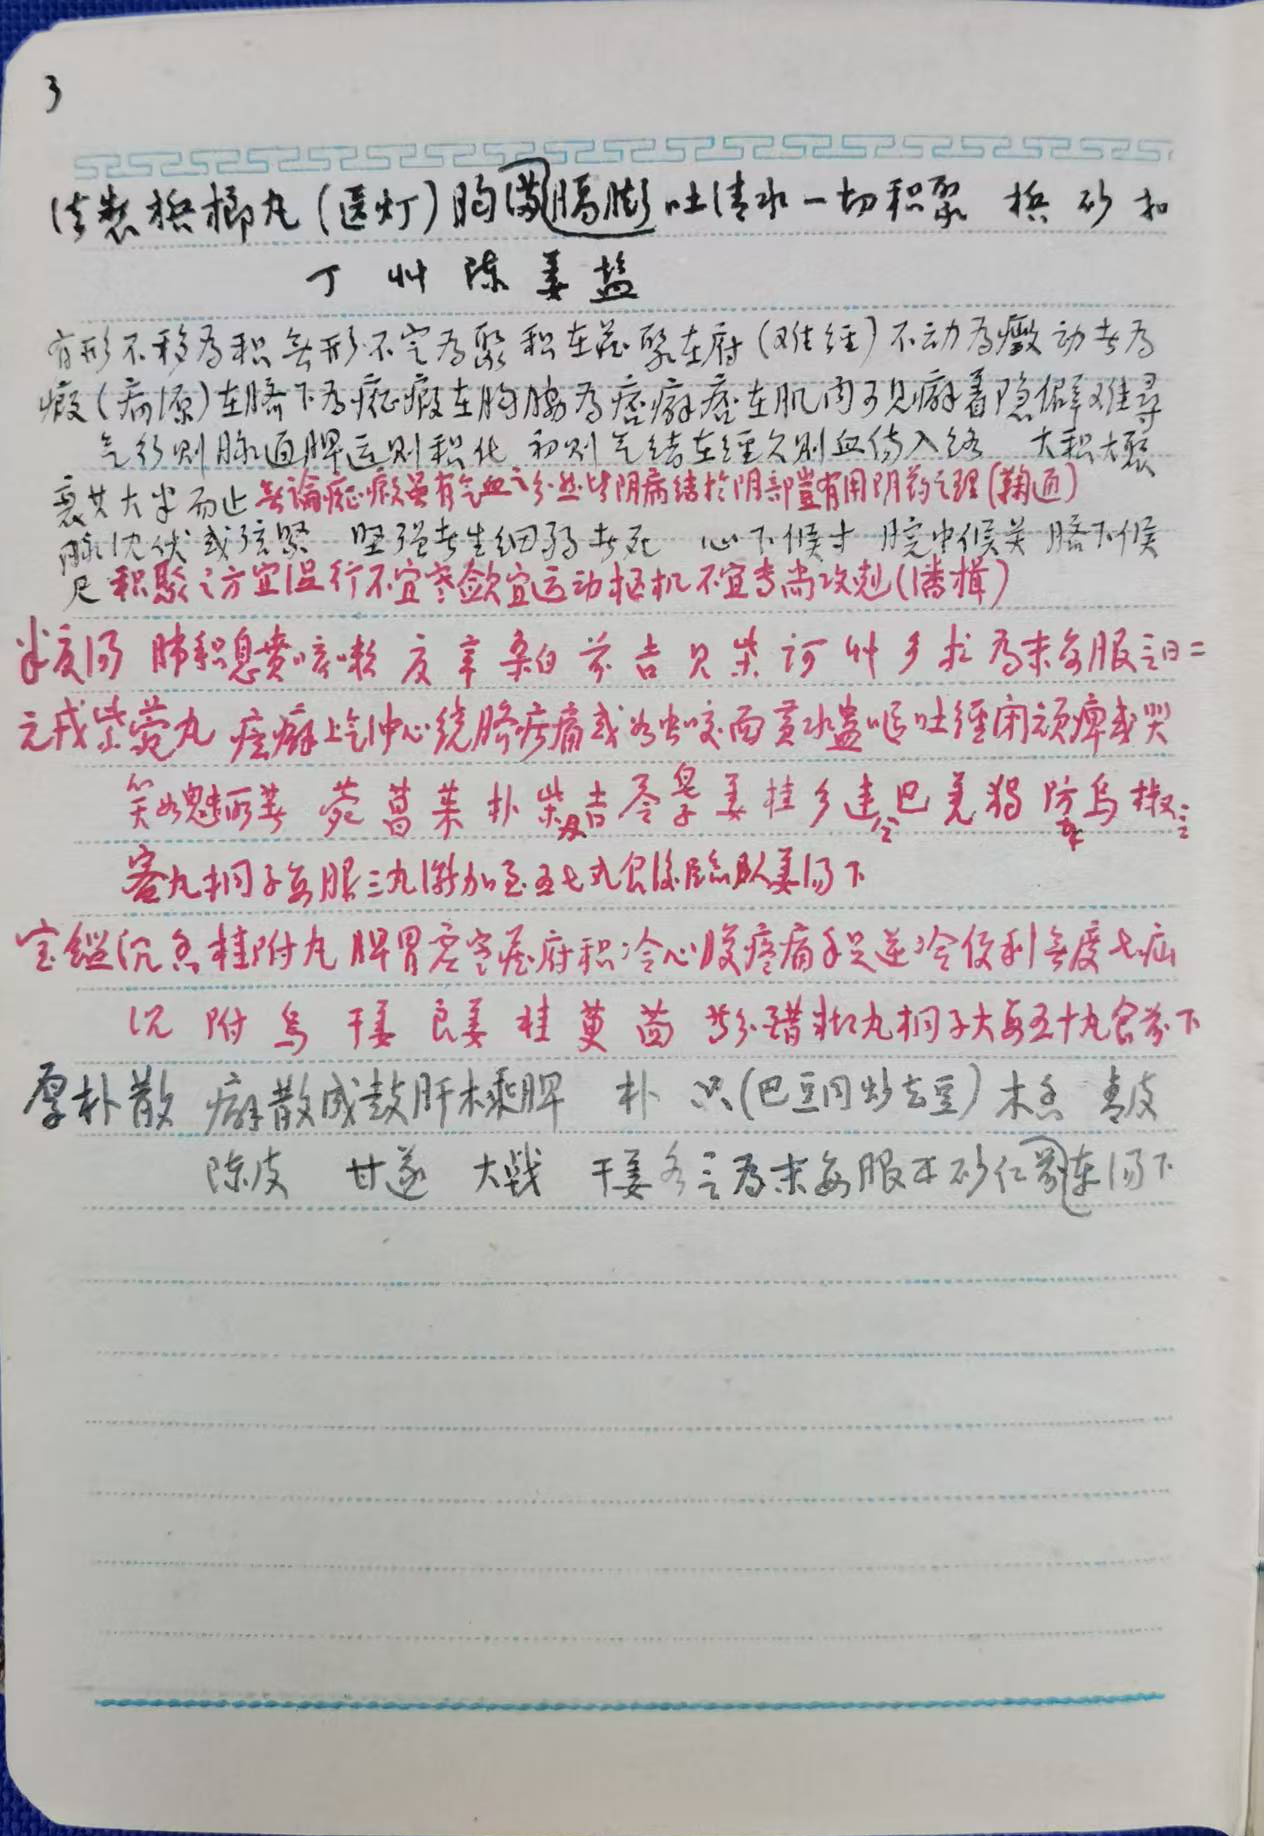 3
法制槟榔丸（医灯）胸满膈膨吐清水一切积聚 槟 砂 扣
丁 艹 陈 姜 盐
有形不移為积無形不定為聚 积在藏聚在府（难经）不动為癥动者為
瘕（病源）在脐下為症瘕在胸胁為痃癖痃在肌肉可见癖着隐僻难寻
气行则脉通脾运则积化 初则气结在经久则血伤入络 大积大聚
衰其大半而止無論症瘕虽有气血之分然皆阴病结於阴部豈有用阴药之理（鞠通）
脉沈伏或弦緊 坚强者生细弱者死 心下候寸 脘中候关 脐下候
尺 积聚之方宜温行不宜寒斂宜运动枢机不宜专尚攻剋（潘楫）
半夏汤 肺积息贲咳嗽 夏 辛 桑白 前 吉 贝 柴 诃 艹 為末每服三日二
元戎紫菀丸 痃癖上气冲心绕脐疼痛或如虫咬面黄水蛊呕吐经闭顽痹或哭
笑如魅所着 菀 菖 茱 朴 柴 吉 苓 皂子 姜 桂 连 巴 羌 独 防 乌 椒
蜜丸桐子每服三丸渐加至五七丸食後臨臥姜汤下
宝鑑沉香桂附丸 脾胃虚寒藏府积冷心腹疼痛手足逆冷便利無度七疝
沉 附 乌 干姜 良姜 桂 萸 茴 等分醋糊丸桐子大每五十丸食前下
厚朴散 癖散成鼓肝木乘脾 朴 只（巴豆同炒去豆）木香 青皮
陈皮 甘遂 大戟 干姜 各三為末每服 砂仁 枣汤下